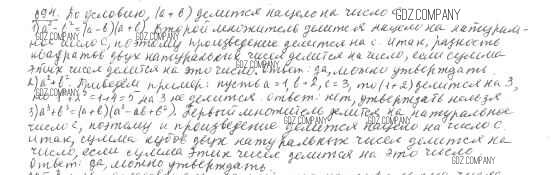 694. По условию, (a + b) делится нацело на число c. GDZ.COMPANY
1) a² - b² = (a - b)(a + b). Второй множитель делится нацело на натураль-
GDZ.COMPANY ное число c, поэтому произведение делится на c. Итак, разность GDZ.COMPANY
квадратов двух натуральных чисел делится на число, если сумма
этих чисел делится на это число. Ответ: да, можно утверждать.
2) a² + b². Приведем пример: пусть a = 1, b = 2, c = 3, то (1 + 2) делится на 3,
но 1² + 2² = 1 + 4 = 5 на 3 не делится. Ответ: нет, утверждать нельзя
3) a³ + b³ = (a + b)(a² - ab + b²). Первый множитель делится на натуральное
число c, поэтому и произведение делится нацело на число c.
Итак, сумма кубов двух натуральных чисел делится на
число, если сумма этих чисел делится на это число
Ответ: да, можно утверждать. GDZ.COMPANY